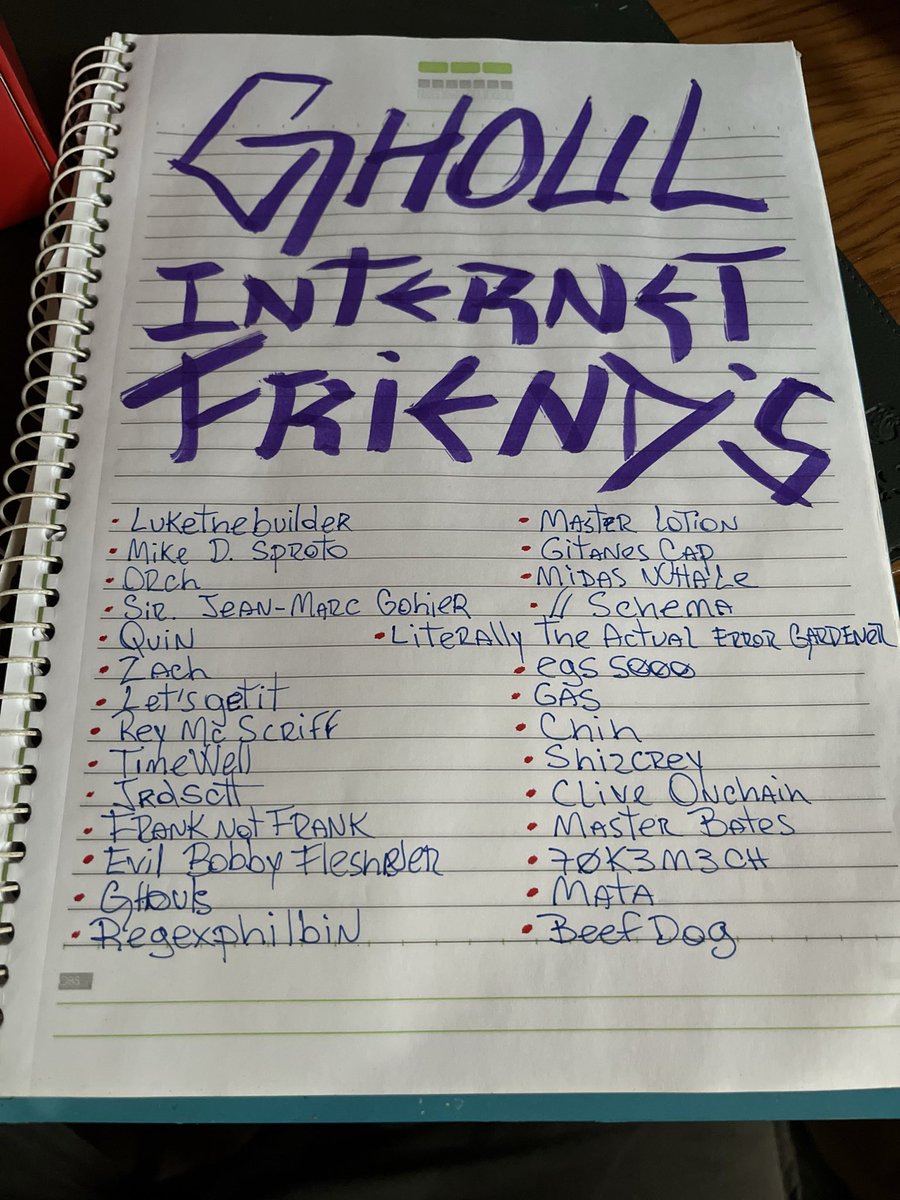 GHOUL
INTERNET
FRIEND'S
• Lukethebuilder
• Mike D. Sproto
• Orch
• Sir. Jean-Marc Gohier
• Quin
• Zach
• Let's get it
• Rey Mc Scriff
• TimeWell
• Jrdsctt
• Frank not Frank
• Evil Bobby Fleshner
• Ghouls
• Regexphilbin
• Master Lotion
• Gitanes Cap
• Midas Whale
• // Schema
• Literally The Actual Error Gardener
• egs 5000
• GAS
• Chin
• Shizcrey
• Clive Onchain
• Master Bates
• 70K3M3CH
• Mata
• Beef Dog